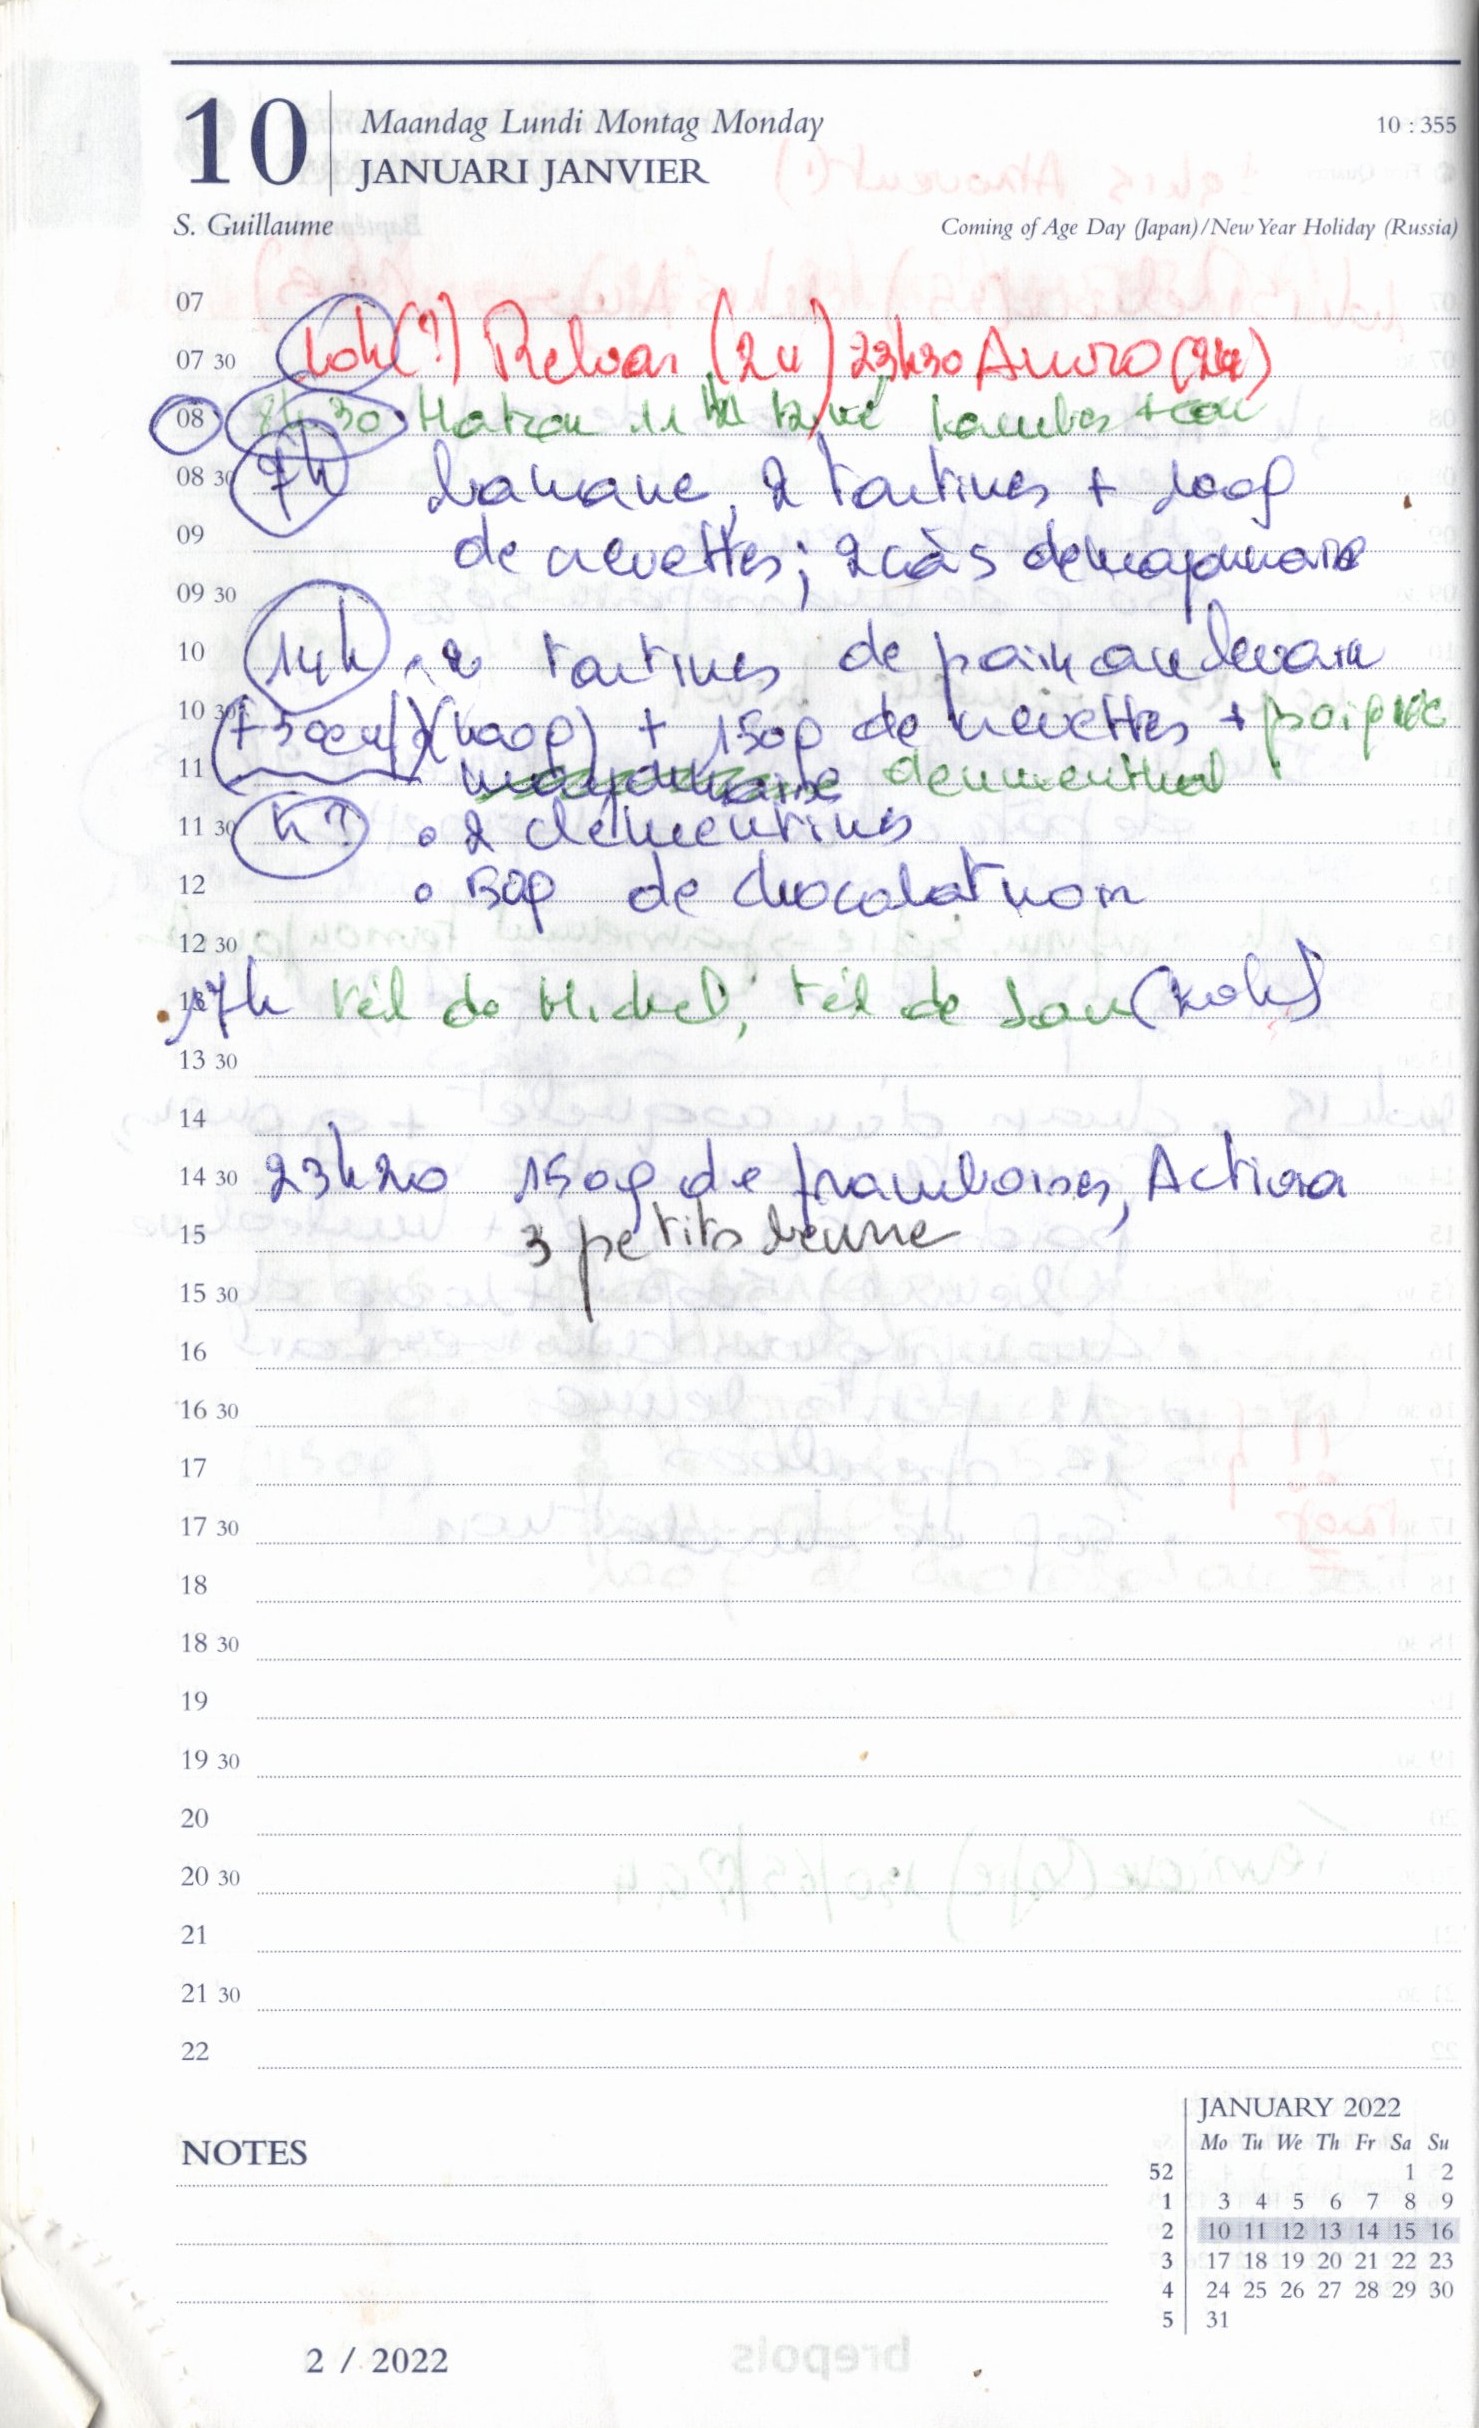 10 Maandag Lundi Montag Monday 10 : 355
JANUARI JANVIER
S. Guillaume Coming of Age Day (Japan)/New Year Holiday (Russia)
07
07 30 10h(?) Relvar (2u) 23h30 Auvro (2u)
08 8h30 11 jambes + cou
08 30 9h banane, 2 tartines + 100g
09 de crevettes; 2 càs de mayonnaise
09 30
10 14h . 2 tartines de pain au levain
10 30 (100g) + 150g de crevettes +
11 mayonnaise d'emmenthal
11 30 h? • 2 clémentines
12 • 50g de chocolat noir
12 30
13 17h tél de Michel, tél de
13 30
14
14 30 23h20 150g de framboises, Activia
15 3 petits beurre
15 30
16
16 30
17
17 30
18
18 30
19
19 30
20
20 30
21
21 30
22
NOTES
JANUARY 2022
Mo Tu We Th Fr Sa Su
52 1 2
1 3 4 5 6 7 8 9
2 10 11 12 13 14 15 16
3 17 18 19 20 21 22 23
4 24 25 26 27 28 29 30
5 31
2 / 2022
brepols